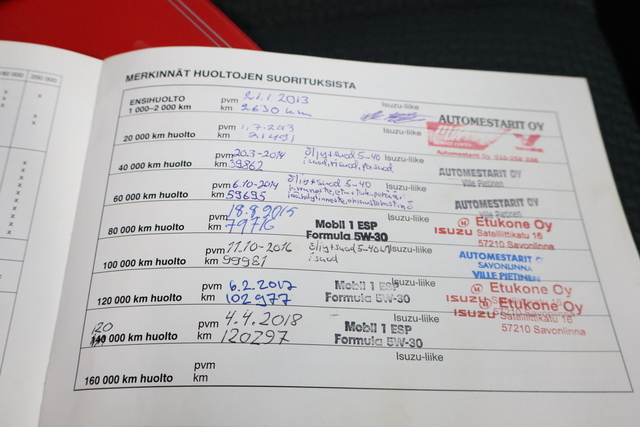 200 000
MERKINNÄT HUOLTOJEN SUORITUKSISTA
ENSIHUOLTO pvm 21.1.2013 Isuzu-liike
1 000–2 000 km km 2630 km AUTOMESTARIT OY
20 000 km huolto pvm 1.7.2013 Isuzu-liike
km 21491
40 000 km huolto pvm 20.3-2014 öljy+suod 5-40 Isuzu-liike
km 39862 AUTOMESTARIT OY
Ville Pietinen
60 000 km huolto pvm 6.10-2014 öljy+suod 5-40 Isuzu-liike
km 59695 AUTOMESTARIT OY
Ville Pietinen
80 000 km huolto pvm 18.8.2015 Mobil 1 ESP Isuzu-liike Etukone Oy
km 79716 Formula 5W-30 ISUZU Satelliittikatu 16
57210 Savonlinna
100 000 km huolto pvm 11.10-2016 öljy+suod 5-40 Isuzu-liike AUTOMESTARIT
km 99981 SAVONLINNA
VILLE PIETINEN
120 000 km huolto pvm 6.2.2017 Mobil 1 ESP Isuzu-liike Etukone Oy
km 102977 Formula 5W-30 ISUZU Satelliittikatu 16
120
140 000 km huolto pvm 4.4.2018 Mobil 1 ESP Isuzu-liike Etukone Oy
km 120297 Formula 5W-30 ISUZU Satelliittikatu 16
57210 Savonlinna
160 000 km huolto pvm Isuzu-liike
km